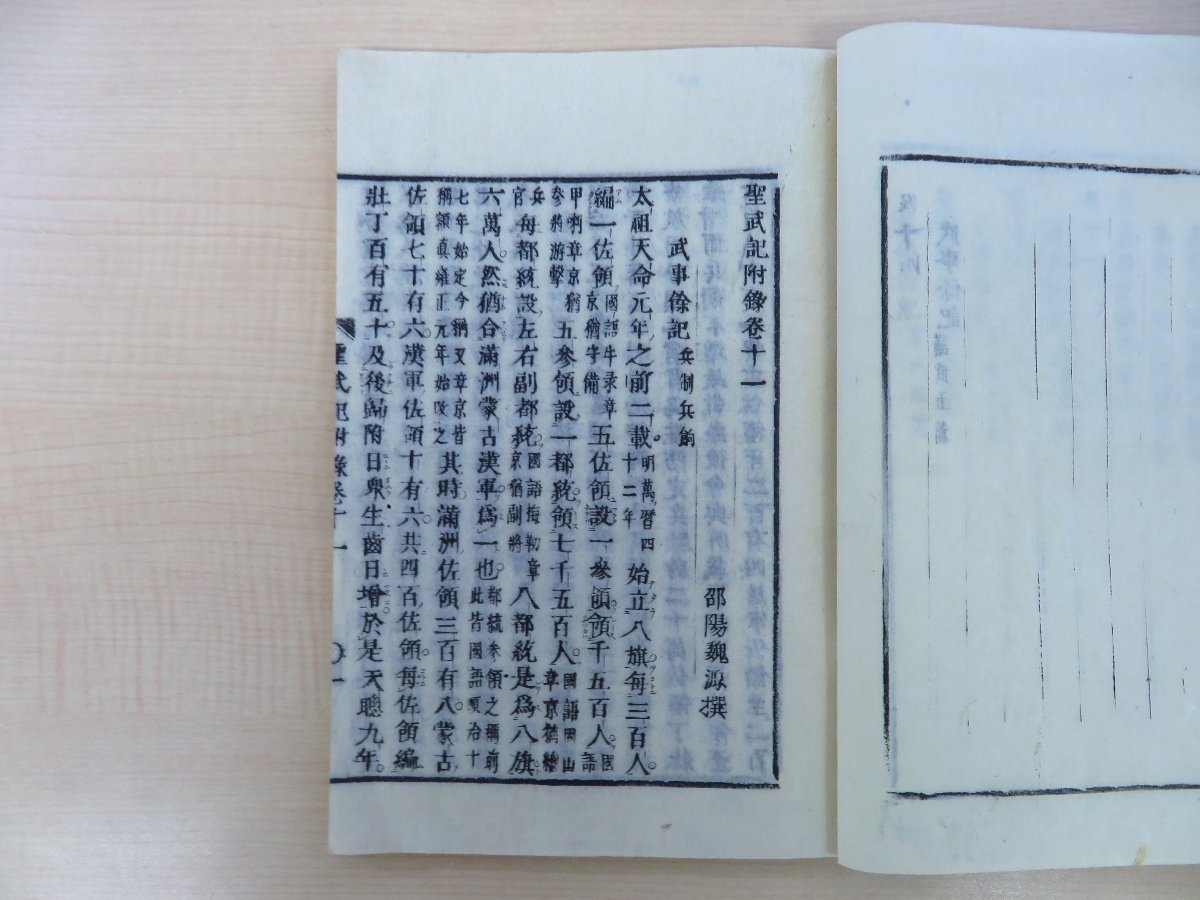 聖武記附錄卷十一
邵陽魏源撰
武事餘記 兵制兵餉
太祖天命元年之前二載 明萬曆四十二年 始立八旗每三百人
編一佐領 國語牛录章京猶守備 五佐領設一參領領千五百人 國語
甲喇章京猶參將游擊 五參領設一都統領七千五百人 國語固山章京猶總
兵官 每都統設左右副都統 國語梅勒章京猶副將 八都統是爲八旗
六萬人然猶合滿洲蒙古漢軍爲一也 都統參領之稱前此皆國語順治十
七年始定今稱又章京皆稱額真雍正元年始改之 其時滿洲佐領三百有八蒙古
佐領七十有六漢軍佐領十有六共四百佐領每佐領編
壯丁百有五十及後歸附日衆生齒日增於是天聰九年
聖武記附錄卷十一
〇一